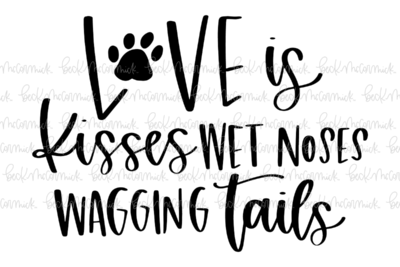 LOVE is
Kisses WET NOSES
WAGGING tails